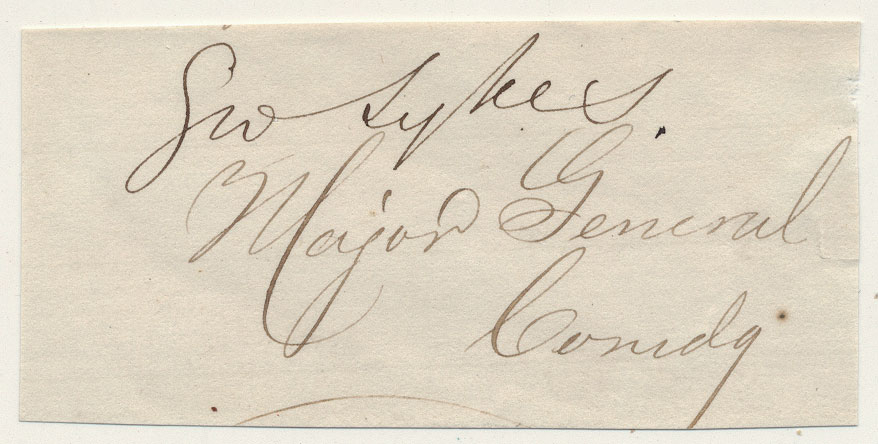 Geo Sykes.
Major General
Comdg